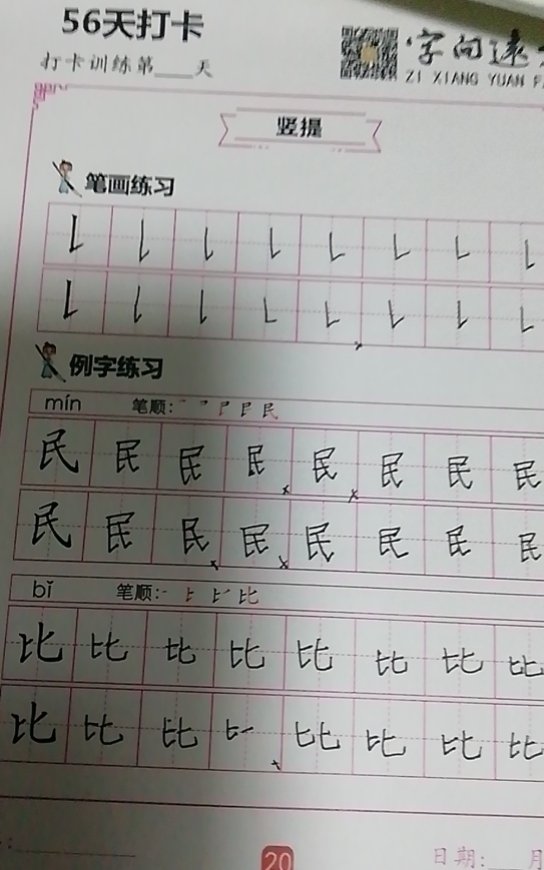 56天打卡
打卡训练第___天
字向速
ZI XIANG YUAN
竖提
笔画练习
例字练习
mín 笔顺:
民 民 民 民 民 民 民 民
民 民 民 民 民 民 民 民
bǐ 笔顺:
比 比 比 比 比 比 比 比
比 比 比 比 比 比 比
20
日期:___月